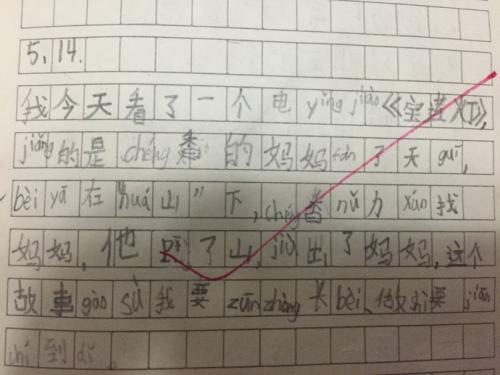 5,14.
我今天看了一个电yǐng jiào《宝莲灯》,
jiǎng的是chéng香的妈妈fàn了天guī,
bèi yā在"huá山"下,chéng香nǔ力xún找
妈妈,他 了山,jiù出了妈妈,这个
故事gào sù我要zūn zhòng长bèi、做shì要jiān
chí到dǐ。